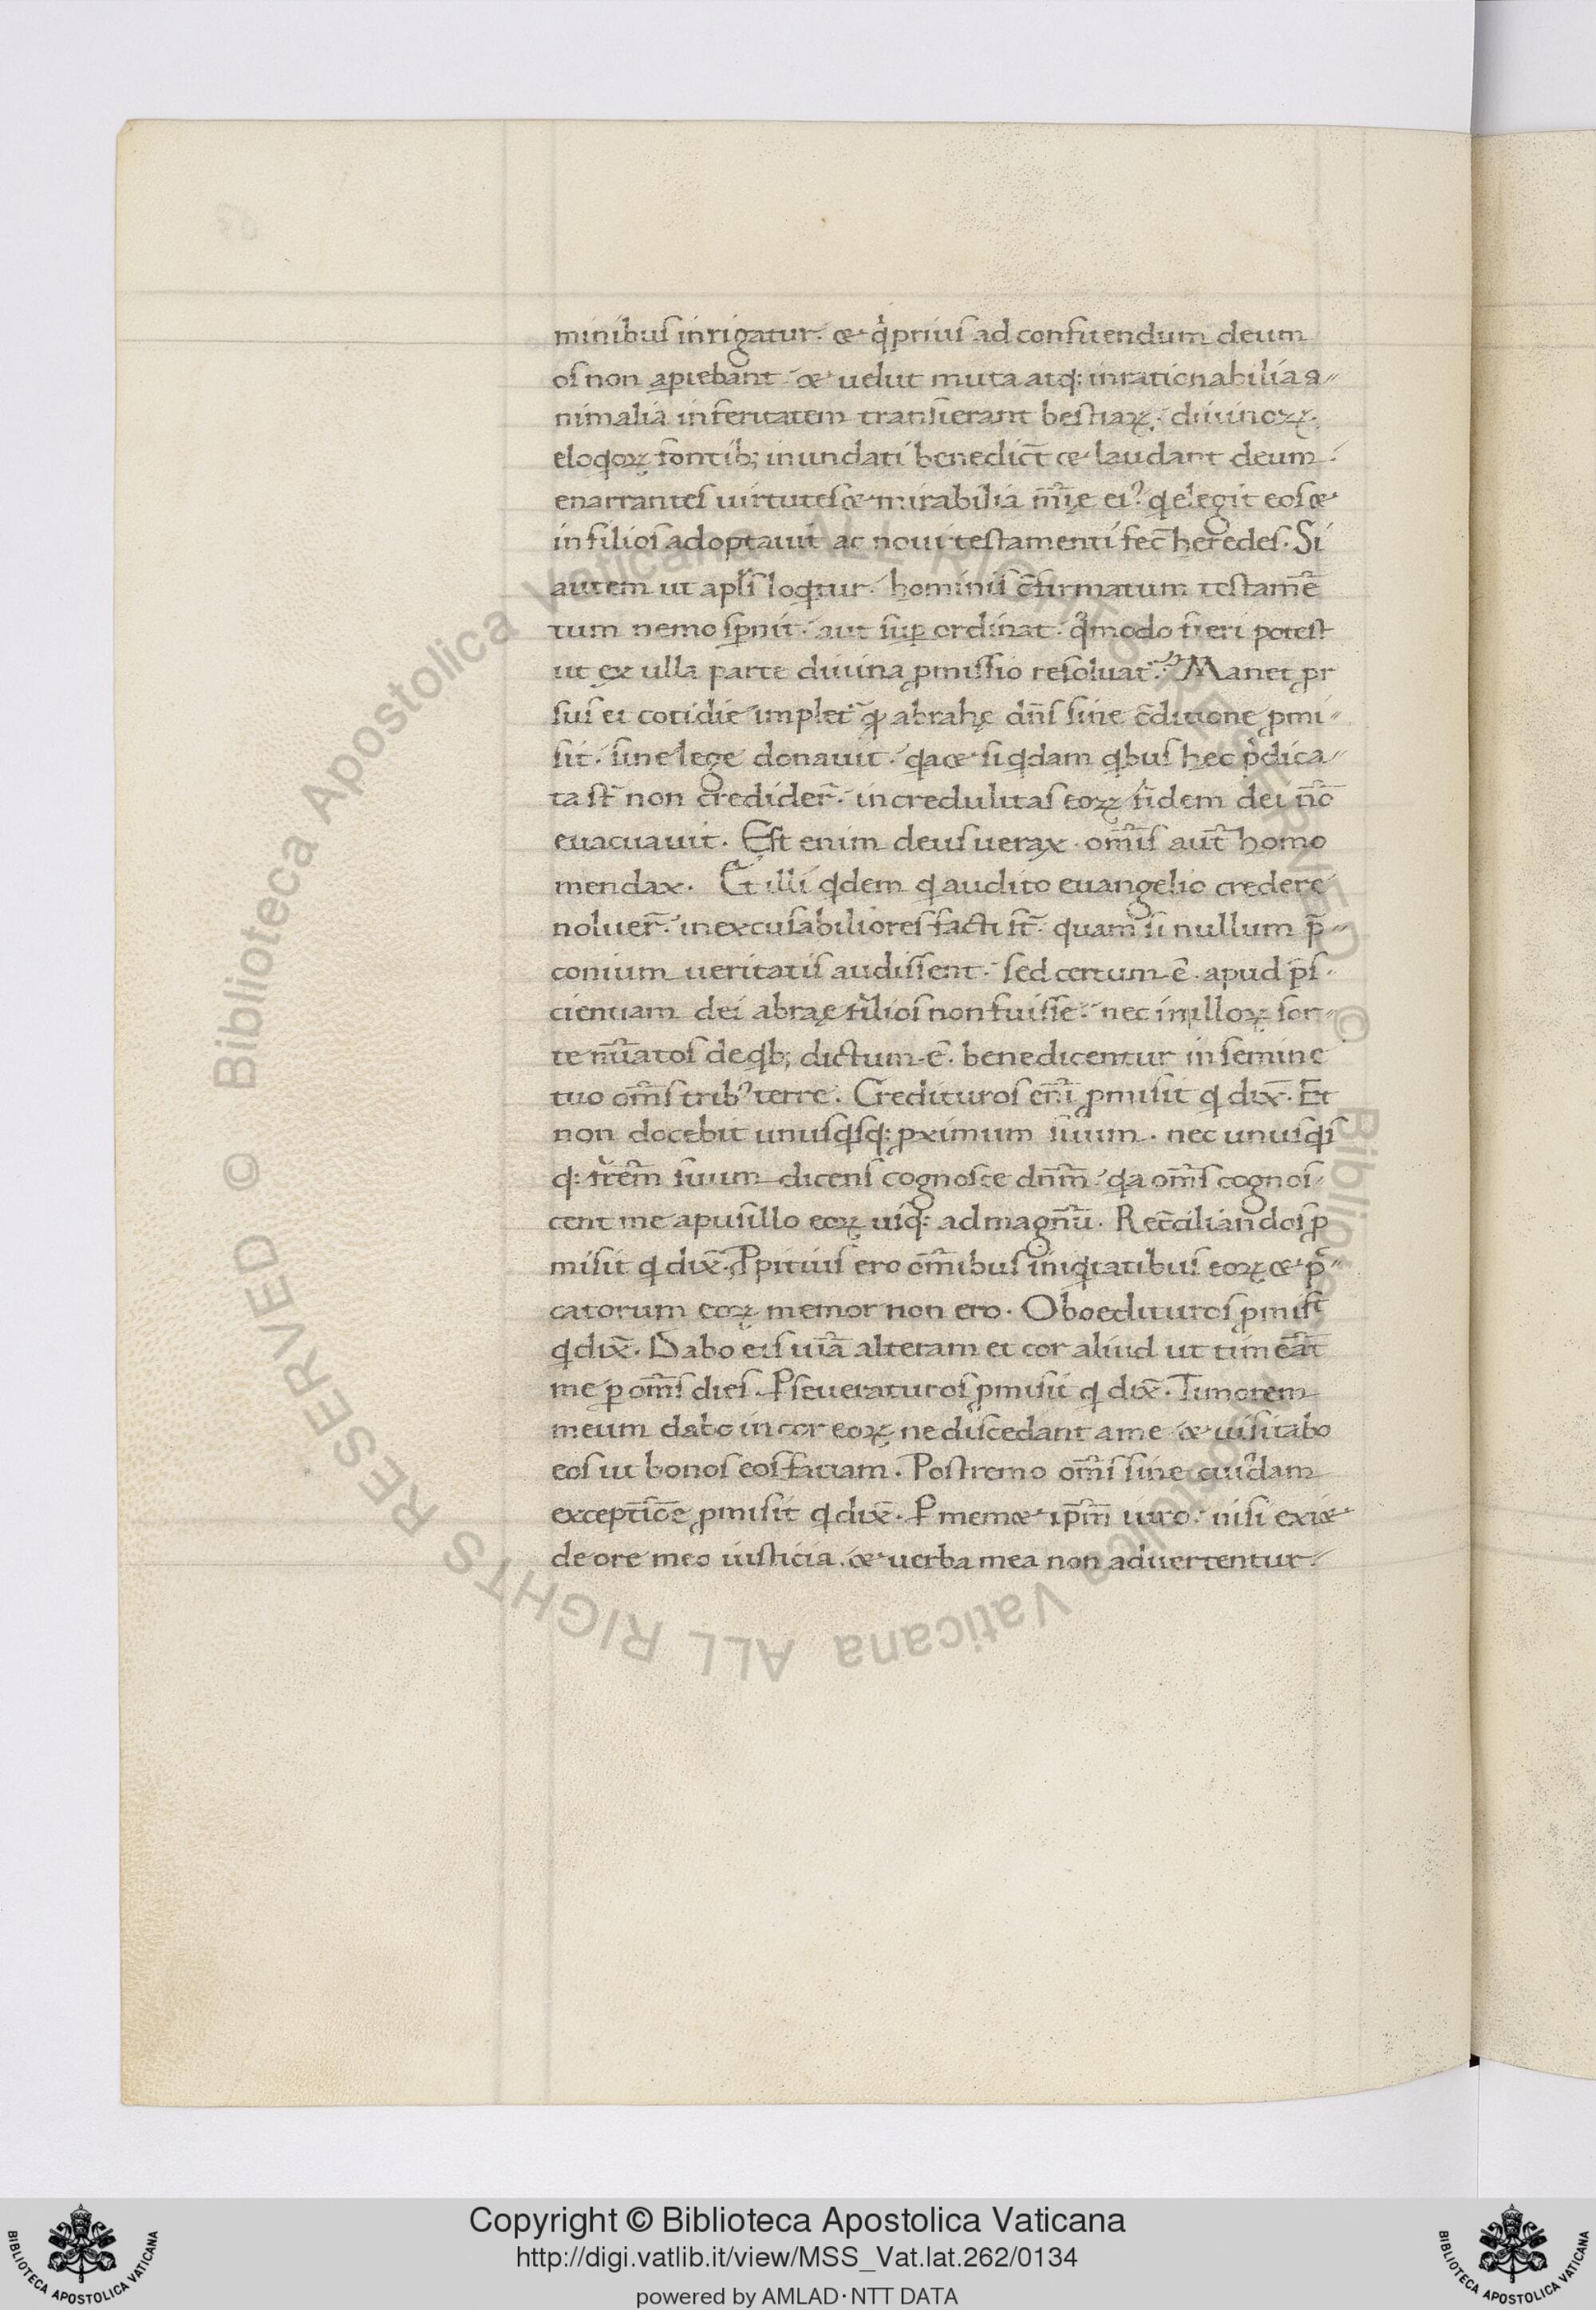 minibus inrigatur. & qͥ prius ad confitendum deum
os non apiebant & uelut muta atq: inrationabilia a-
nimalia in feritatem transierant bestiaꝝ. diuinoꝝ
eloqoꝝ fontib; inundati benedict̄ & laudant deum.
enarrantes uirtutes & mirabilia m̄ię eiꝰ q elegit eos &
in filios adoptauit ac noui testamenti fec̄ heredes. Si
autem ut apl̄s loqtur. hominis c̄firmatum testam̄e
tum nemo sꝑnit. aut suꝑ ordinat. qͦmodo fieri potest
ut ex ulla parte diuina ꝓmissio resoluat᷑. Manet ꝓr
sus et cotidie implet᷑ qͩ abrahę dn̄s sine c̄ditione ꝓmi-
sit. sine lege donauit. qa & si qdam qbus hec p̄dica-
ta st̄ non credider̄. incredulitas eoꝝ fidem dei n̄o
euacuauit. Est enim deus uerax. om̄is aut̄ homo
mendax. Et illi qdem q audito euangelio credere
noluer̄. inexcusabiliores facti st̄. quam si nullum p̄-
conium ueritatis audissent. sed certum ē. apud p̄s-
cientiam dei abraę filios non fuisse. nec in illoꝝ sor-
te nūatos de qb; dictum ē. benedicentur in semine
tuo om̄s tribꝰ terre. Credituros en̄i ꝓmisit q dix̄. Et
non docebit unusqsq: ꝓximum suum. nec unusqs
q: fr̄em suum dicens cognosce dn̄m. qa om̄s cognos-
cent me a pusillo eoꝝ usq: ad magn̄u. Rec̄ciliandos ꝓ
misit q dix̄. Ꝓpitius ero om̄ibus iniqtatibus eoꝝ & p̄-
catorum eoꝝ memor non ero. Oboedituros ꝓmisit
q dix̄. Dabo eis uiā alteram et cor aliud ut timeāt
me ꝑ om̄s dies. Ꝑseueraturos ꝓmisit q dix̄. Timorem
meum dabo in cor eoꝝ ne discedant a me & uisitabo
eos ut bonos eos faciam. Postremo om̄s sine cuidam
exceptiōe ꝓmisit q dix̄. Ꝑ mem& ip̄m iuro. nisi exi&
de ore meo iusticia. & uerba mea non aduertentur.
© Biblioteca Apostolica Vaticana ALL RIGHTS RESERVED © Biblioteca Apostolica Vaticana ALL RIGHTS RESERVED
Copyright © Biblioteca Apostolica Vaticana
http://digi.vatlib.it/view/MSS_Vat.lat.262/0134
powered by AMLAD·NTT DATA
BIBLIOTECA APOSTOLICA VATICANA
BIBLIOTECA APOSTOLICA VATICANA